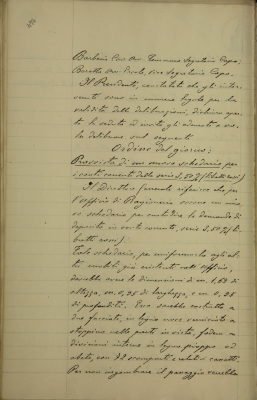 Barberis Cav. Avv. Tommaso Segretario Capo;
Beretta Avv. Vice Segretario Capo.
Il Presidente, constatato che gli inter-
venuti sono in numero legale per la
validità delle deliberazioni, dichiara aper-
ta la seduta ed invita gli adunati a vo-
ler deliberare sul seguente
Ordine del giorno:
Provvista di un nuovo schedario per
i conti correnti della serie
Il Direttore Generale riferisce che per
l'ufficio di Ragioneria occorre un nuo-
vo schedario per custodire le domande di
deposito in conto corrente, serie
Tale schedario, per uniformarlo agli al-
tri mobili già esistenti nell'ufficio,
dovrebbe avere le dimensioni di m. 1,63 di
altezza, m. 0,95 di larghezza, e m. 0,95
di profondità. Esso sarebbe costruito a
due facciate, in legno noce verniciato a
stoppino nelle parti in vista, fodera e
divisioni interne in legno pioppo ed
abete, con 72 scomparti e relativi cassetti.
Per non ingombrare il passaggio sarebbe